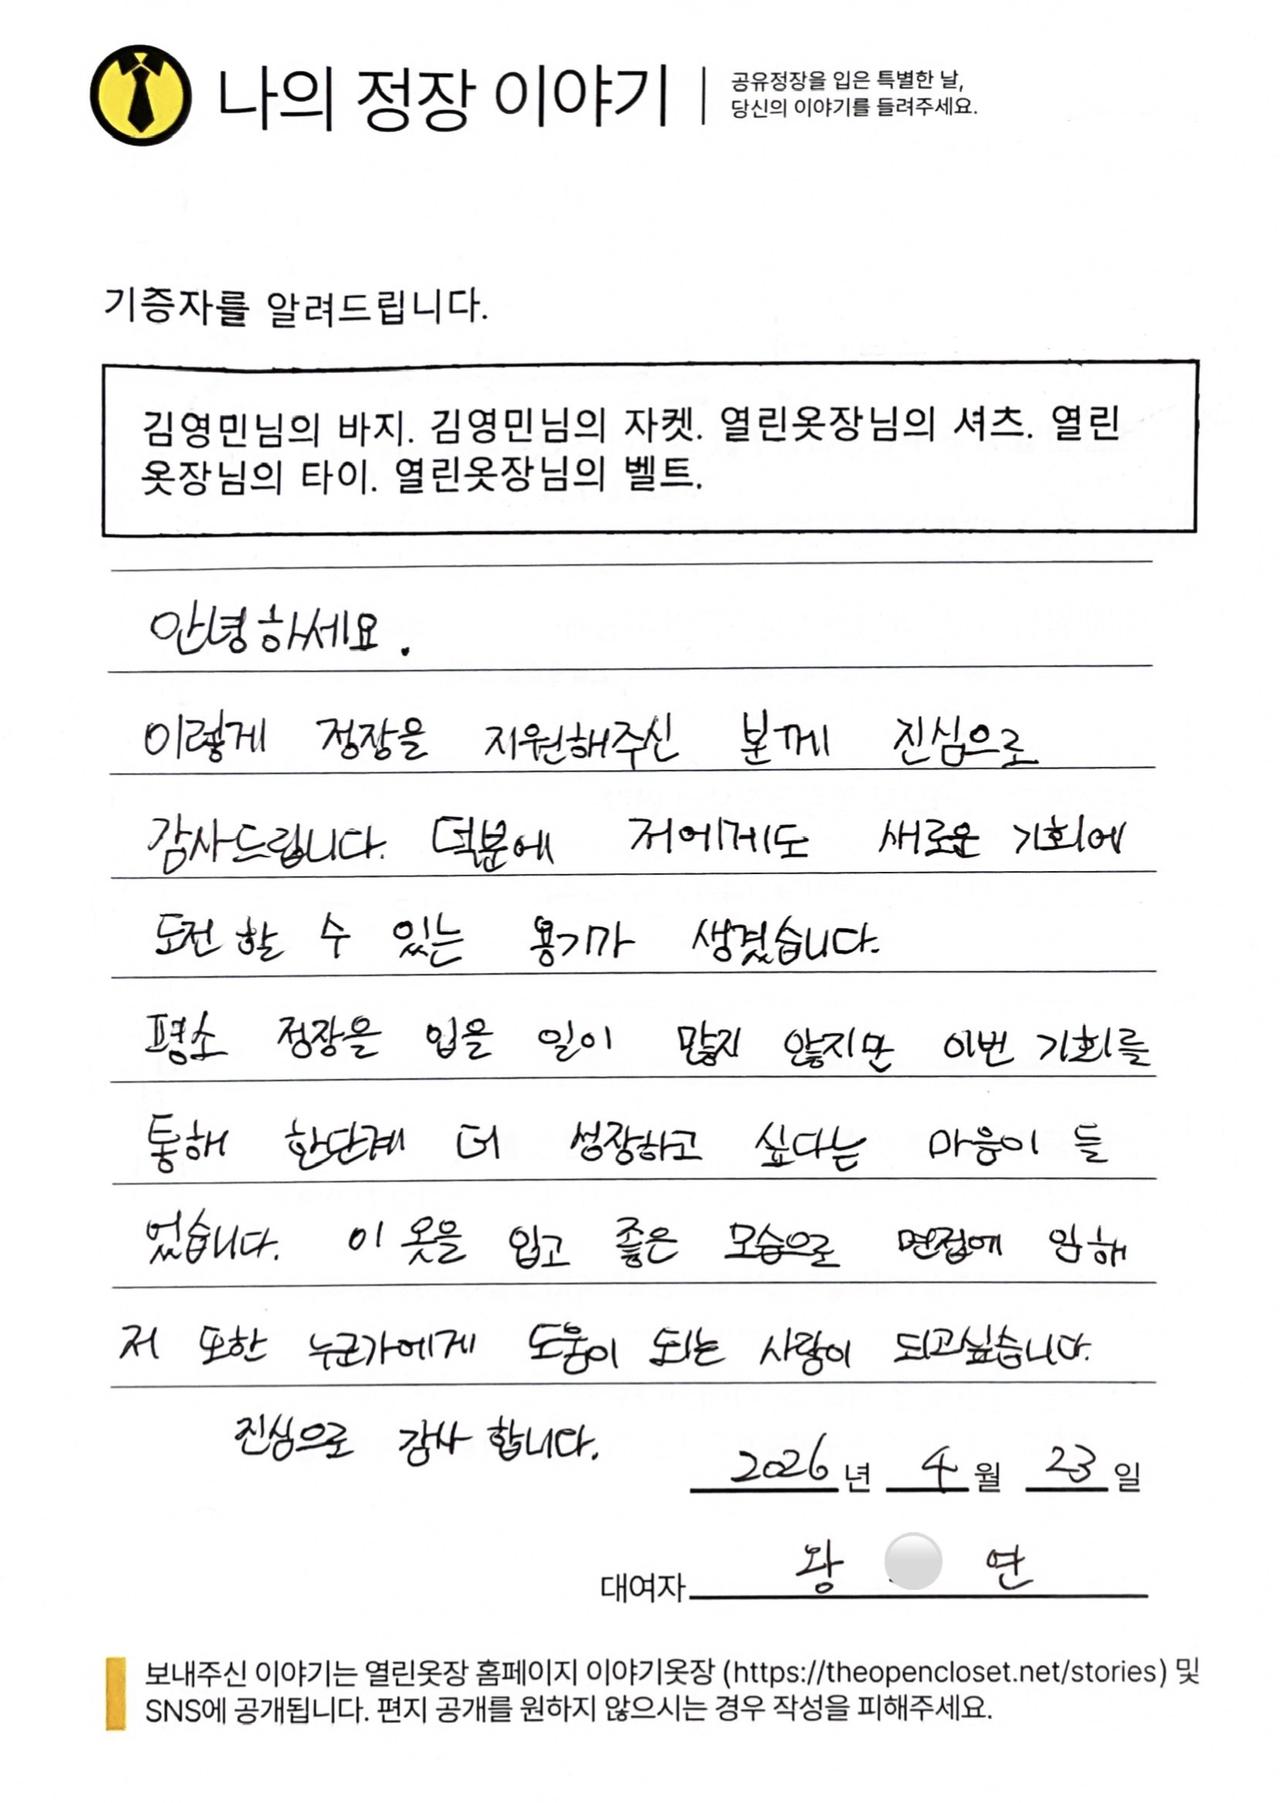 나의 정장 이야기
공유정장을 입은 특별한 날,
당신의 이야기를 들려주세요.
기증자를 알려드립니다.
김영민님의 바지. 김영민님의 자켓. 열린옷장님의 셔츠. 열린
옷장님의 타이. 열린옷장님의 벨트.
안녕하세요.
이렇게 정장을 지원해주신 분께 진심으로
감사드립니다. 덕분에 저에게도 새로운 기회에
도전 할 수 있는 용기가 생겼습니다.
평소 정장을 입을 일이 많지 않지만 이번 기회를
통해 한단계 더 성장하고 싶다는 마음이 들
었습니다. 이 옷을 입고 좋은 모습으로 면접에 임해
저 또한 누군가에게 도움이 되는 사람이 되고싶습니다.
진심으로 감사 합니다.
2026년 4월 23일
대여자 왕 연
보내주신 이야기는 열린옷장 홈페이지 이야기옷장 (https://theopencloset.net/stories) 및
SNS에 공개됩니다. 편지 공개를 원하지 않으시는 경우 작성을 피해주세요.